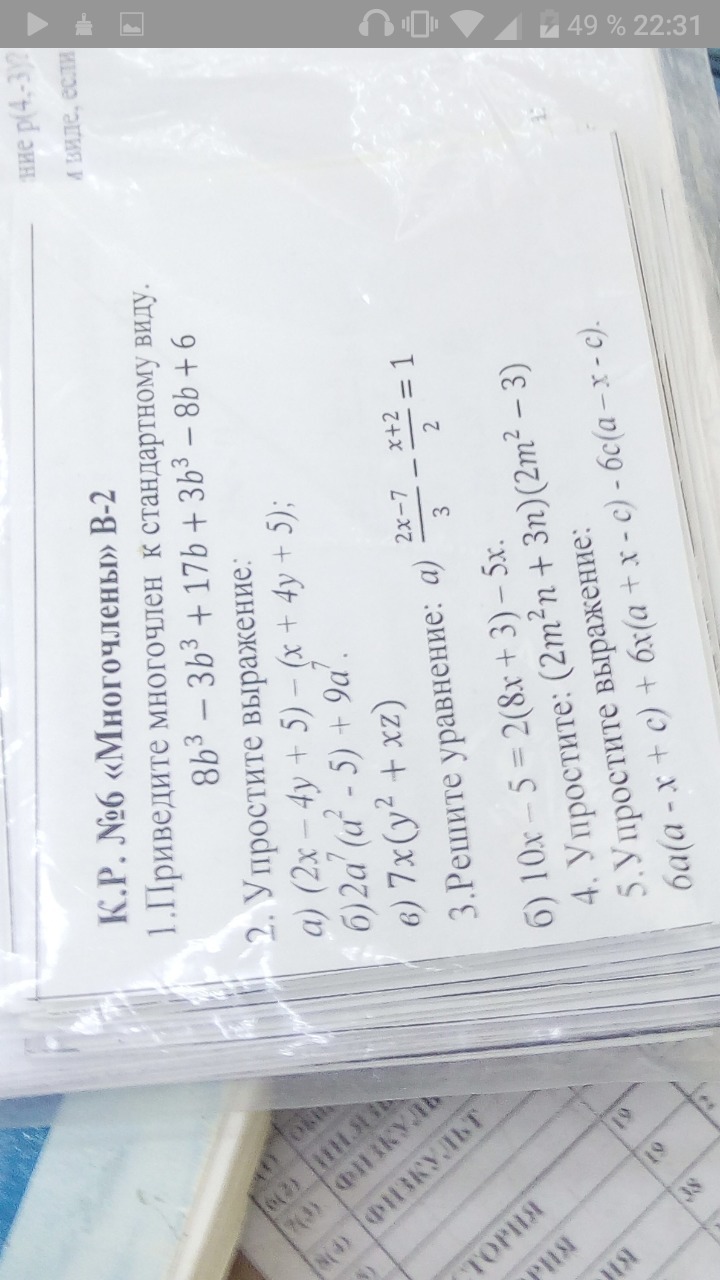 49 % 22:31
ние p(4,-3)?
и виде, если
К.Р. №6 «Многочлены» В-2
1.Приведите многочлен к стандартному виду.
8b³ − 3b³ + 17b + 3b³ − 8b + 6
2. Упростите выражение:
а) (2x – 4y + 5) – (x + 4y + 5);
б)2a⁷(a² - 5) + 9a⁷.
в) 7x(y² + xz)
3.Решите уравнение: а) (2x−7)/3 − (x+2)/2 = 1
б) 10x – 5 = 2(8x + 3) – 5x.
4. Упростите: (2m²n + 3n)(2m² − 3)
5.Упростите выражение:
6a(a - x + c) + 6x(a + x - c) - 6c(a – x - c).
6(2) ИН.ЯЗ
7(3) ФИЗКУЛЬ
8(4) ФИЗКУЛЬТ
ТОРИЯ
РИЯ
ИЯ
19
19
38